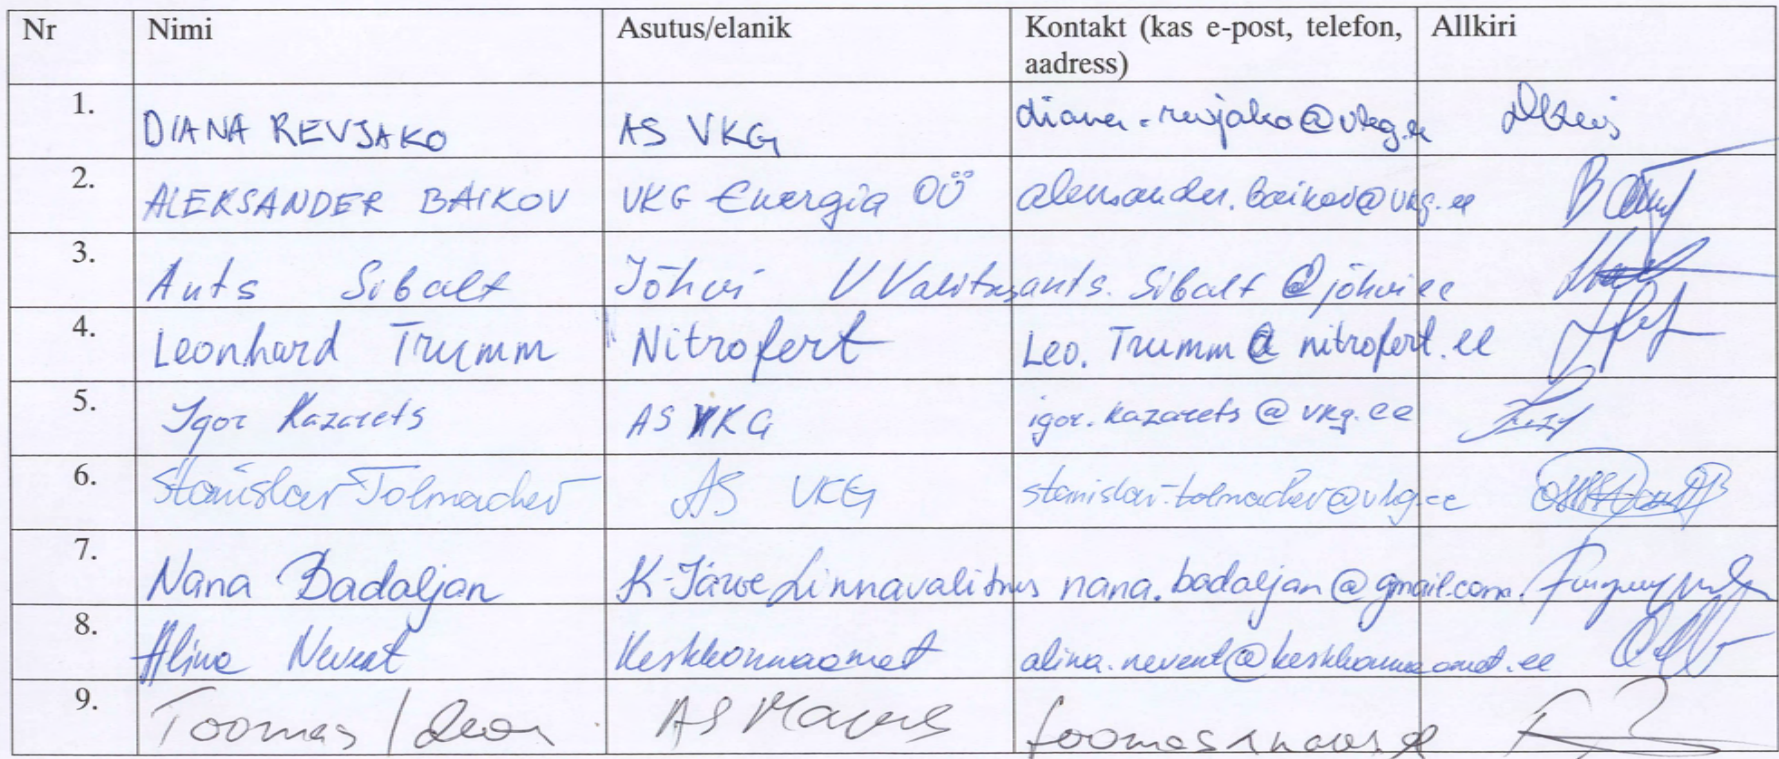 Nr Nimi Asutus/elanik Kontakt (kas e-post, telefon, aadress) Allkiri
1. DIANA REVJAKO AS VKG diana.revjako@vkg.ee
2. ALEKSANDER BAIKOV VKG Energia OÜ aleksander.baikov@vkg.ee
3. Ants Sibalt Jõhvi VValitsus ants.Sibalt@jõhvi.ee
4. Leonhard Trumm Nitrofert Leo.Trumm@nitrofert.ee
5. Igor Kazarets AS VKG igor.kazarets@vkg.ee
6. Stanislav Tolmachev AS VKG stanislav.tolmachev@vkg.ee
7. Nana Badaljan K-Järve Linnavalitsus nana.badaljan@gmail.com
8. Alina Nevent Keskkonnaamet alina.nevent@keskkonnaamet.ee
9. Toomas AS